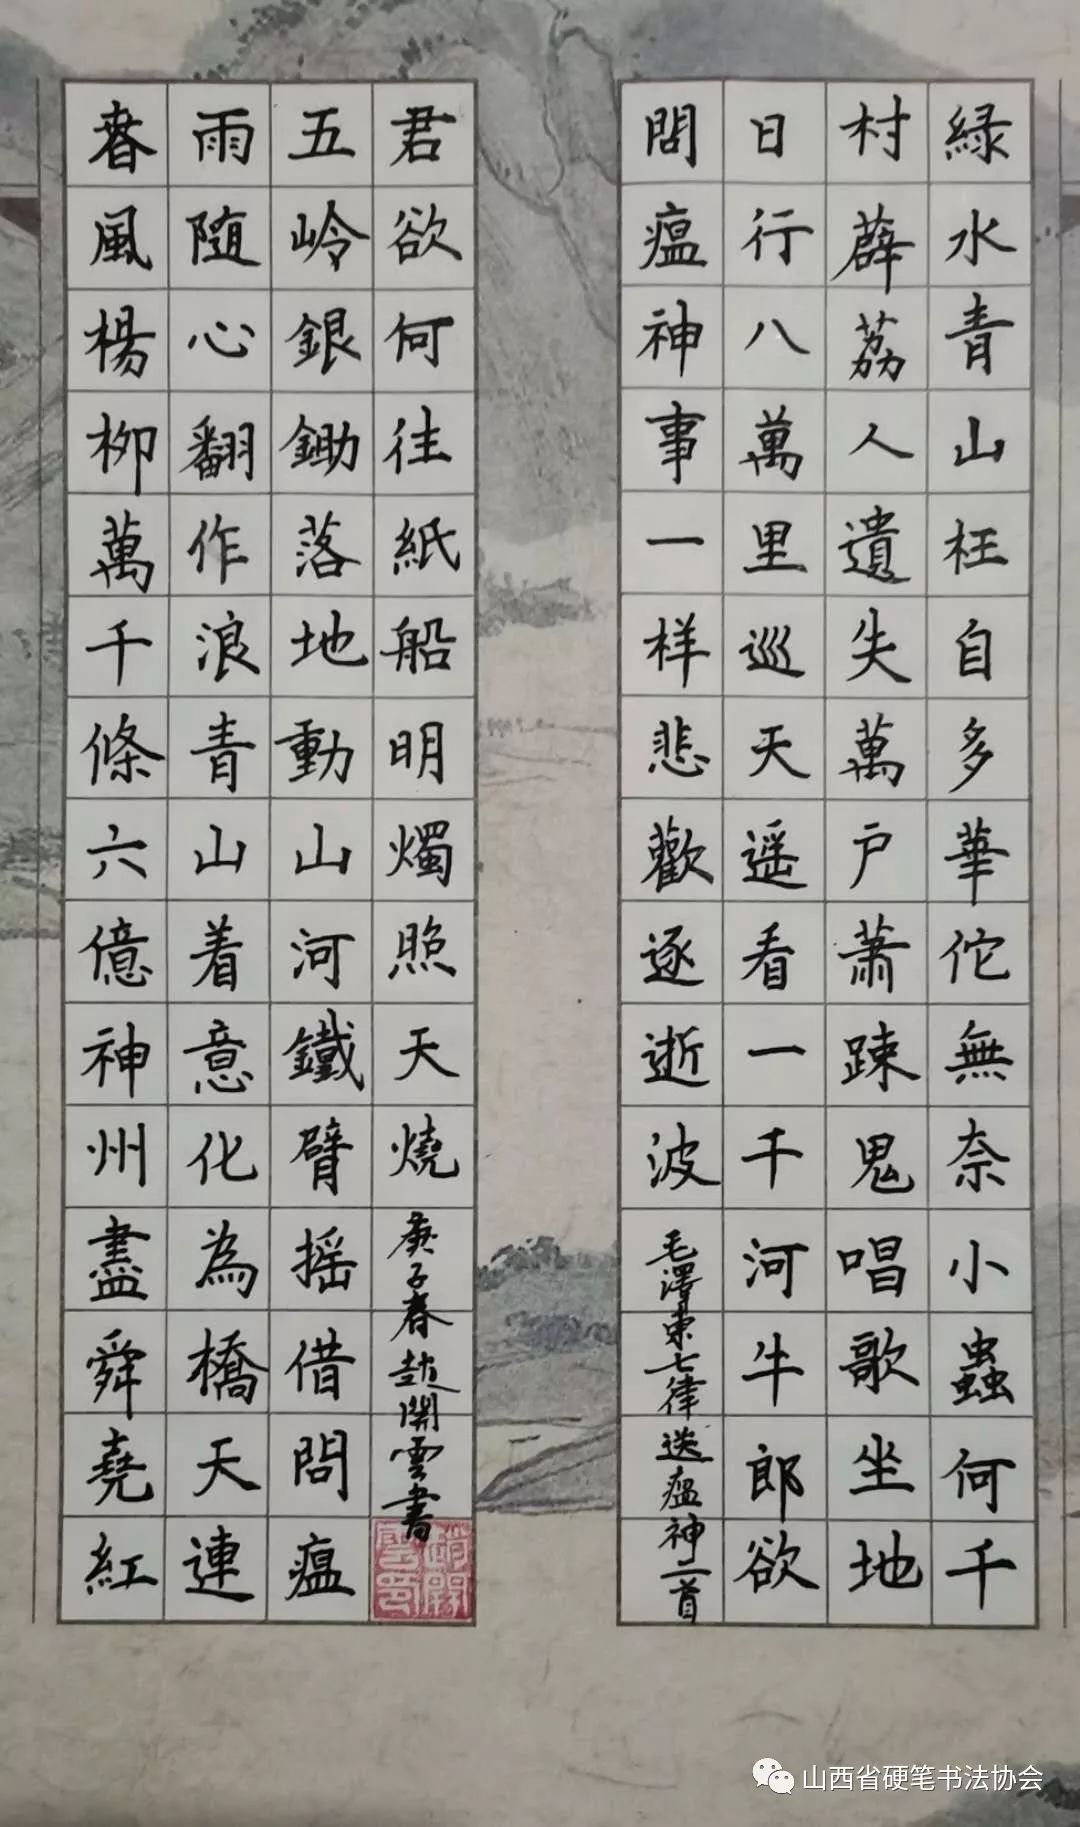 緑水青山枉自多華佗無奈小蟲何千
村薜荔人遺失萬户蕭踈鬼唱歌坐地
日行八萬里巡天遥看一千河牛郎欲
問瘟神事一样悲歡逐逝波
毛澤東七律送瘟神二首
春風楊柳萬千條六億神州盡舜堯紅
雨随心翻作浪青山着意化為橋天連
五岭銀鋤落地動山河鐵臂摇借問瘟
君欲何往紙船明燭照天燒
庚子春趙開雲書
趙開雲印
山西省硬笔书法协会